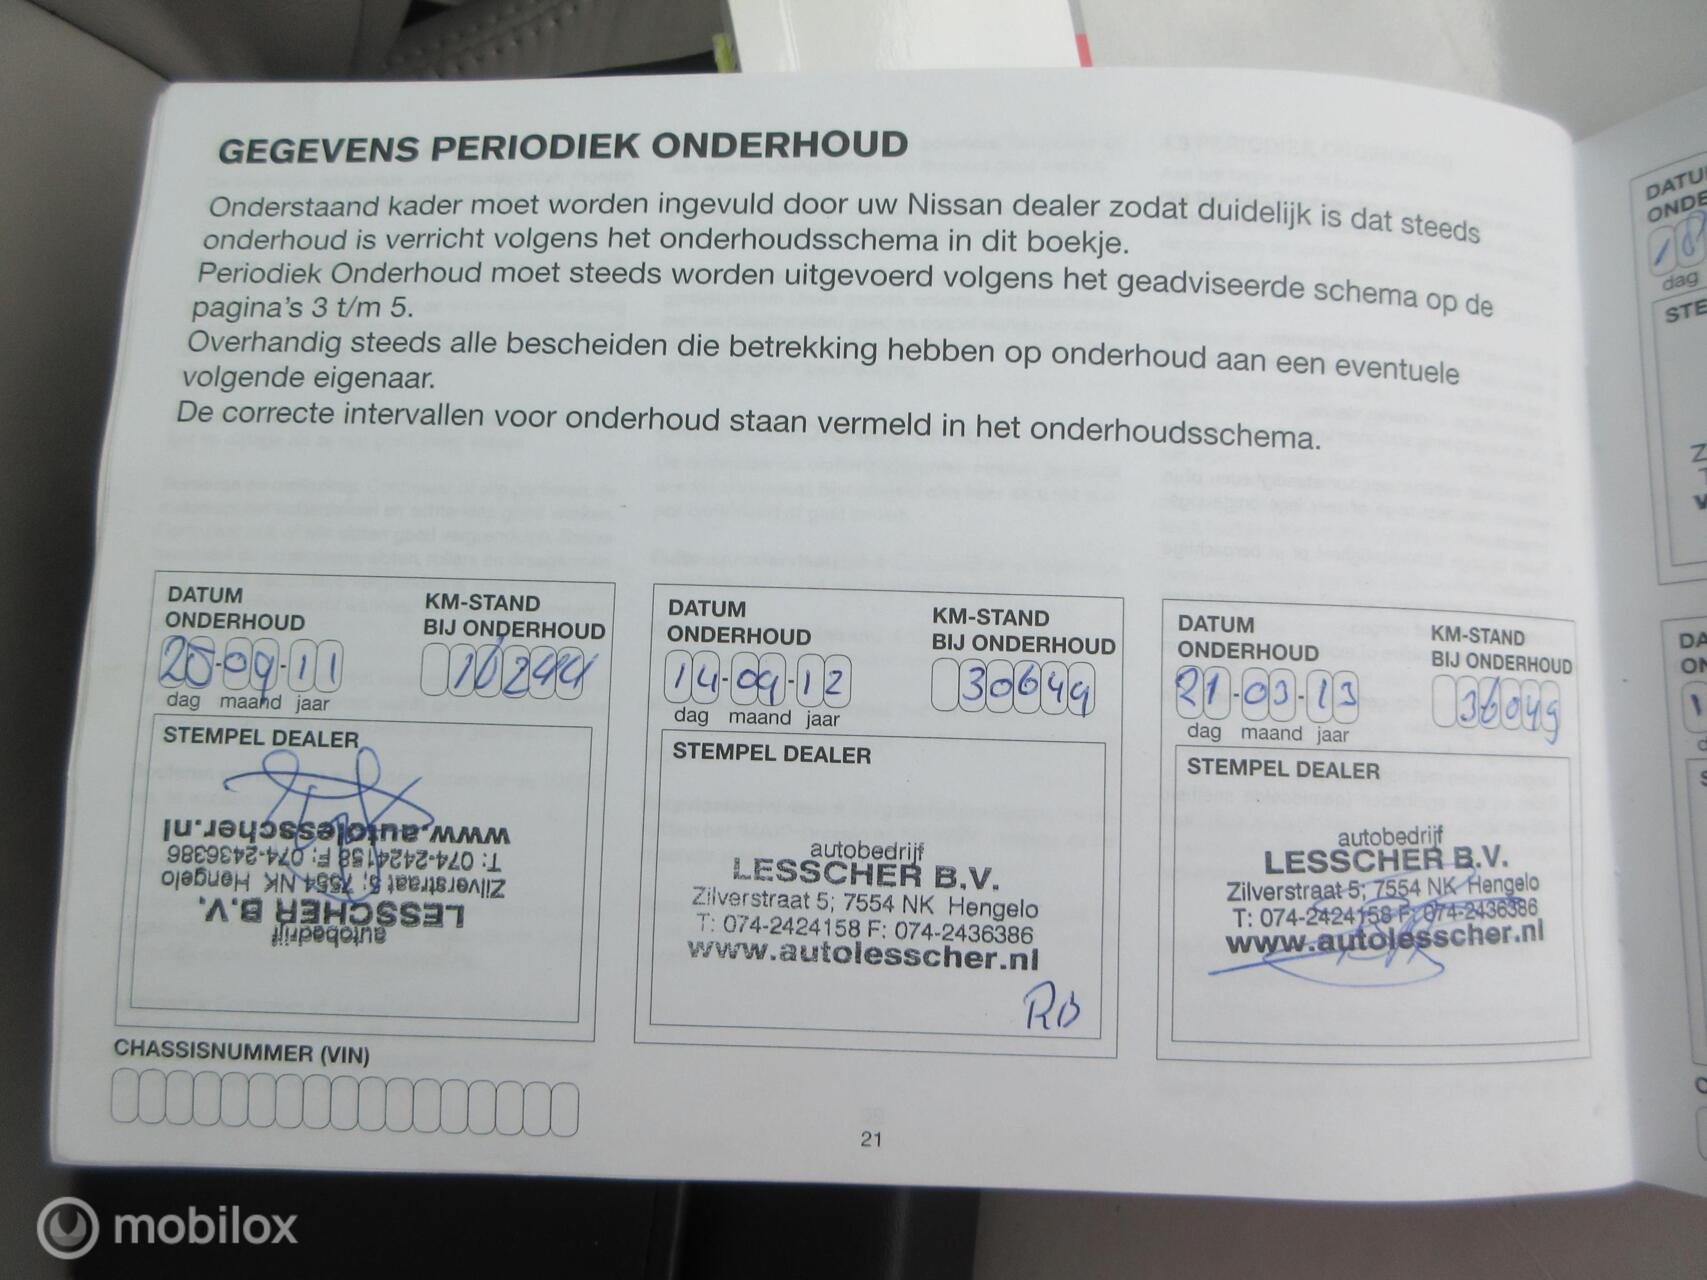 GEGEVENS PERIODIEK ONDERHOUD
Onderstaand kader moet worden ingevuld door uw Nissan dealer zodat duidelijk is dat steeds
onderhoud is verricht volgens het onderhoudsschema in dit boekje.
Periodiek Onderhoud moet steeds worden uitgevoerd volgens het geadviseerde schema op de
pagina's 3 t/m 5.
Overhandig steeds alle bescheiden die betrekking hebben op onderhoud aan een eventuele
volgende eigenaar.
De correcte intervallen voor onderhoud staan vermeld in het onderhoudsschema.
DATUM
ONDERHOUD
KM-STAND
BIJ ONDERHOUD
25-09-11
16244
dag maand jaar
STEMPEL DEALER
autobedrijf
LESSCHER B.V.
Zilverstraat 5; 7554 NK Hengelo
T: 074-2424158 F: 074-2436386
www.autolesscher.nl
CHASSISNUMMER (VIN)
DATUM
ONDERHOUD
KM-STAND
BIJ ONDERHOUD
14-09-12
30649
dag maand jaar
STEMPEL DEALER
autobedrijf
LESSCHER B.V.
Zilverstraat 5; 7554 NK Hengelo
T: 074-2424158 F: 074-2436386
www.autolesscher.nl
RB
DATUM
ONDERHOUD
KM-STAND
BIJ ONDERHOUD
21-03-13
36049
dag maand jaar
STEMPEL DEALER
autobedrijf
LESSCHER B.V.
Zilverstraat 5; 7554 NK Hengelo
T: 074-2424158 F: 074-2436386
www.autolesscher.nl
21
DATU
ONDE
18
dag
STE
mobilox